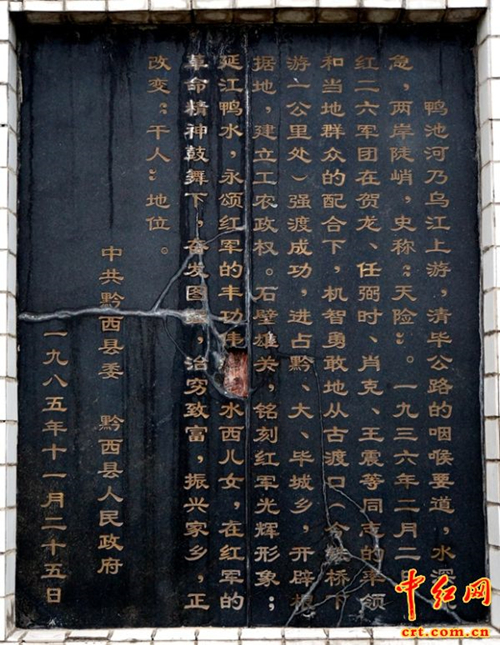 鸭池河乃乌江上游，清毕公路的咽喉要道，水深
急，两岸陡峭，史称“天险”。一九三六年二月二日
红二六军团在贺龙、任弼时、肖克、王震等同志的率领
和当地群众的配合下，机智勇敢地从古渡口（今铁桥下
游一公里处）强渡成功，进占黔、大、毕城乡，开辟根
据地，建立工农政权。石壁雄关，铭刻红军光辉形象；
延江鸭水，永颂红军的丰功伟水西儿女，在红军的
革命精神鼓舞下，奋发图强，治穷致富，振兴家乡，正
改变“干人”地位。
中共黔西县委 黔西县人民政府
一九八五年十一月二十五日
中红网
crt.com.cn